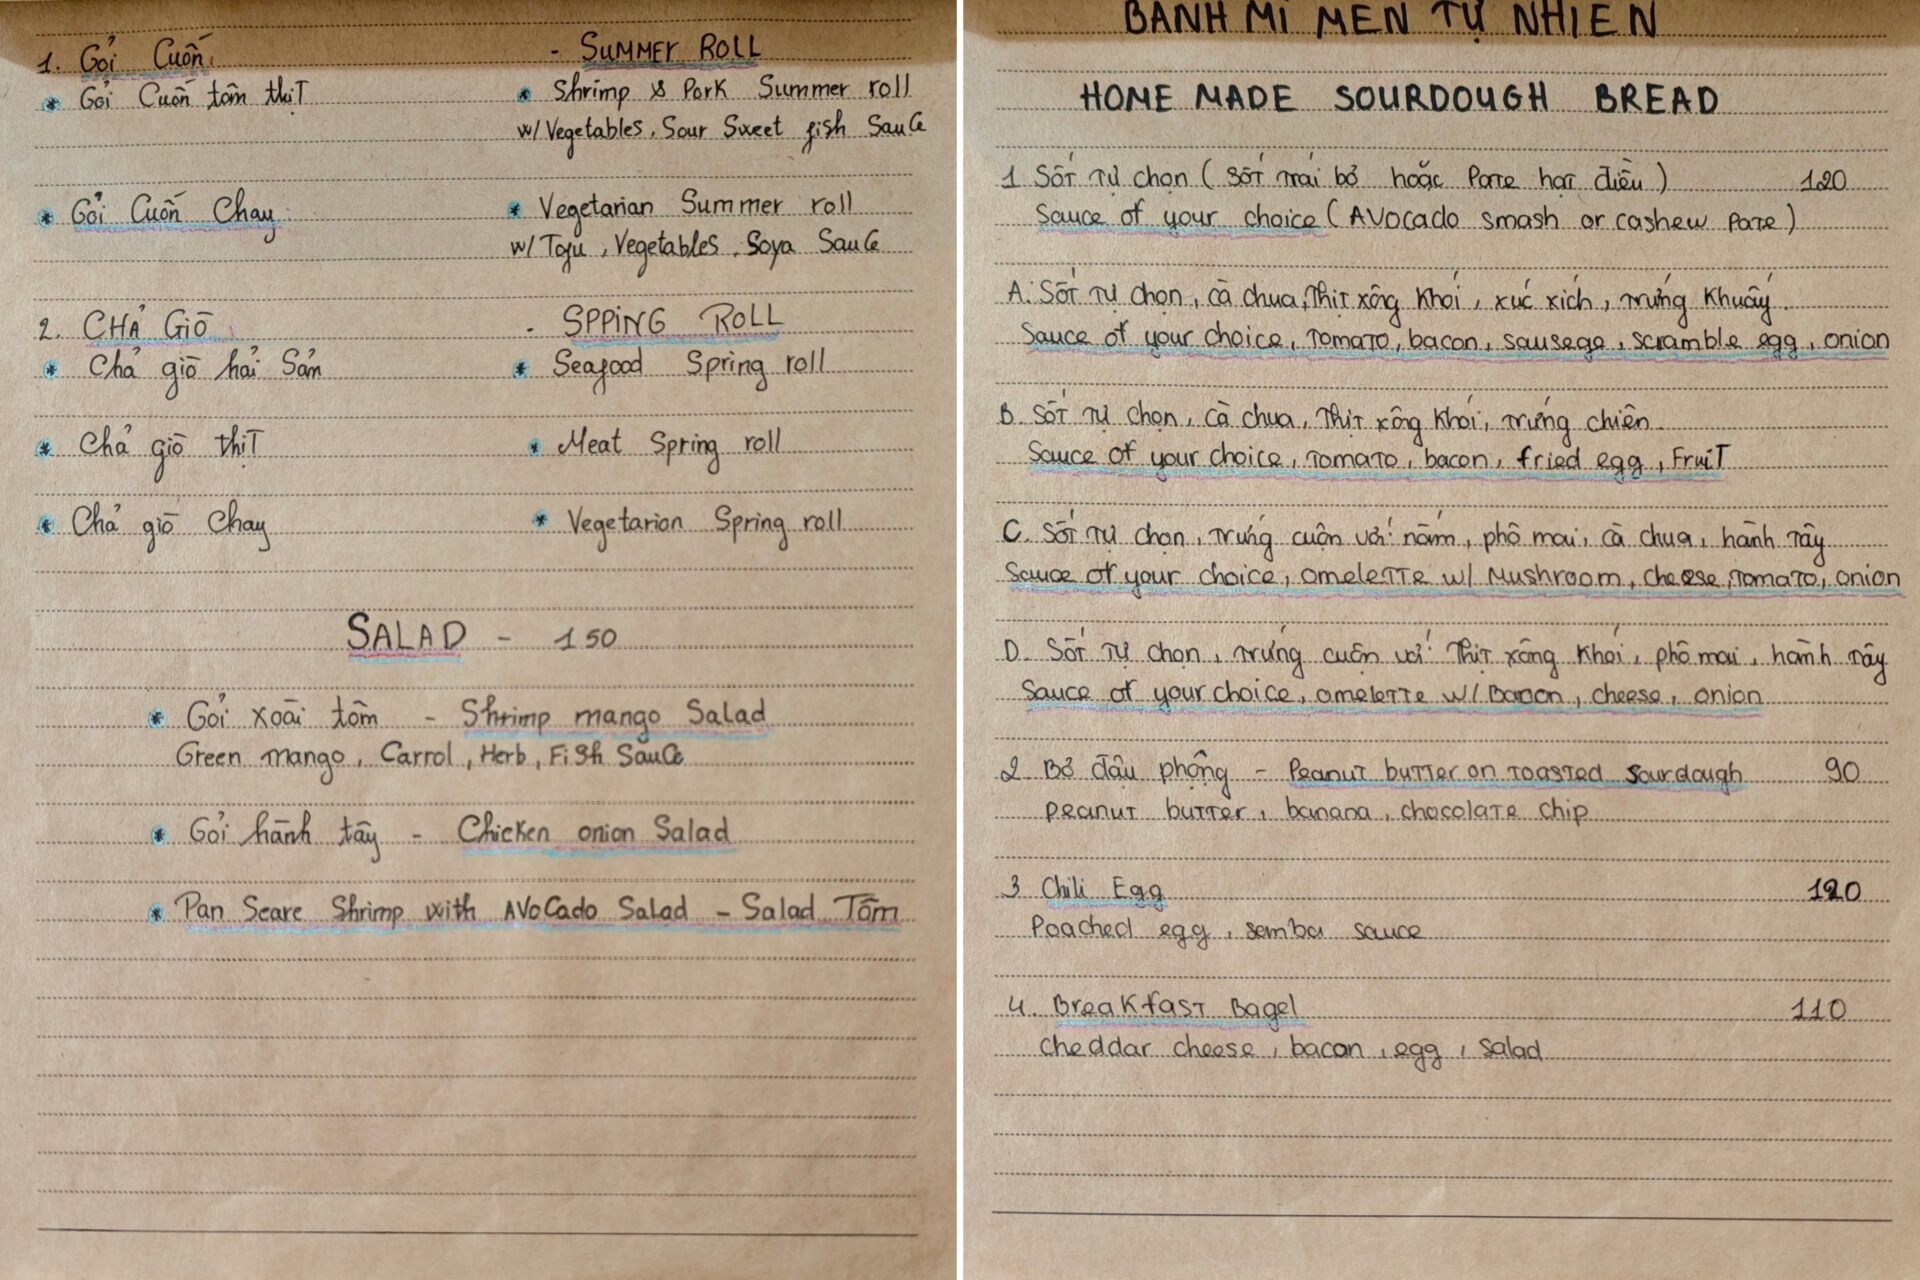 1. Gỏi Cuốn - SUMMER ROLL
* Gỏi Cuốn tôm thịt * Shrimp & Pork Summer roll
w/ Vegetables, Sour Sweet fish Sauce
* Gỏi Cuốn Chay * Vegetarian Summer roll
w/ Tofu, Vegetables, Soya Sauce
2. CHẢ GIÒ - SPPING ROLL
* Chả giò hải Sản * Seafood Spring roll
* Chả giò thịt * Meat Spring roll
* Chả giò Chay * Vegetarian Spring roll
SALAD - 150
* Gỏi xoài tôm - Shrimp mango Salad
Green mango, Carrol, Herb, Fish Sauce
* Gỏi hành tây - Chicken onion Salad
* Pan Seare Shrimp with Avocado Salad - Salad Tôm
BÁNH MÌ MEN TỰ NHIÊN
HOME MADE SOURDOUGH BREAD
1 Sốt tự chọn ( sốt trái bơ hoặc Pate hạt điều ) 120
Sauce of your choice ( Avocado smash or cashew Pate )
A. Sốt tự chọn, cà chua, thịt xông khói, xúc xích, trứng khuấy.
Sauce of your choice, tomato, bacon, sausege, scramble egg, onion
B. Sốt tự chọn, cà chua, thịt xông khói, trứng chiên.
Sauce of your choice, tomato, bacon, fried egg, Fruit
C. Sốt tự chọn, trứng cuộn với nấm, phô mai, cà chua, hành tây
Sauce of your choice, omelette w/ Mushroom, cheese, tomato, onion
D. Sốt tự chọn, trứng cuộn với thịt xông khói, phô mai, hành tây
Sauce of your choice, omelette w/ Bacon, cheese, onion
2 Bơ đậu phộng - Peanut butter on toasted sourdough 90
peanut butter, banana, chocolate chip
3 Chili Egg 120
Poached egg, sembu sauce
4. Breakfast Bagel 110
cheddar cheese, bacon, egg, salad